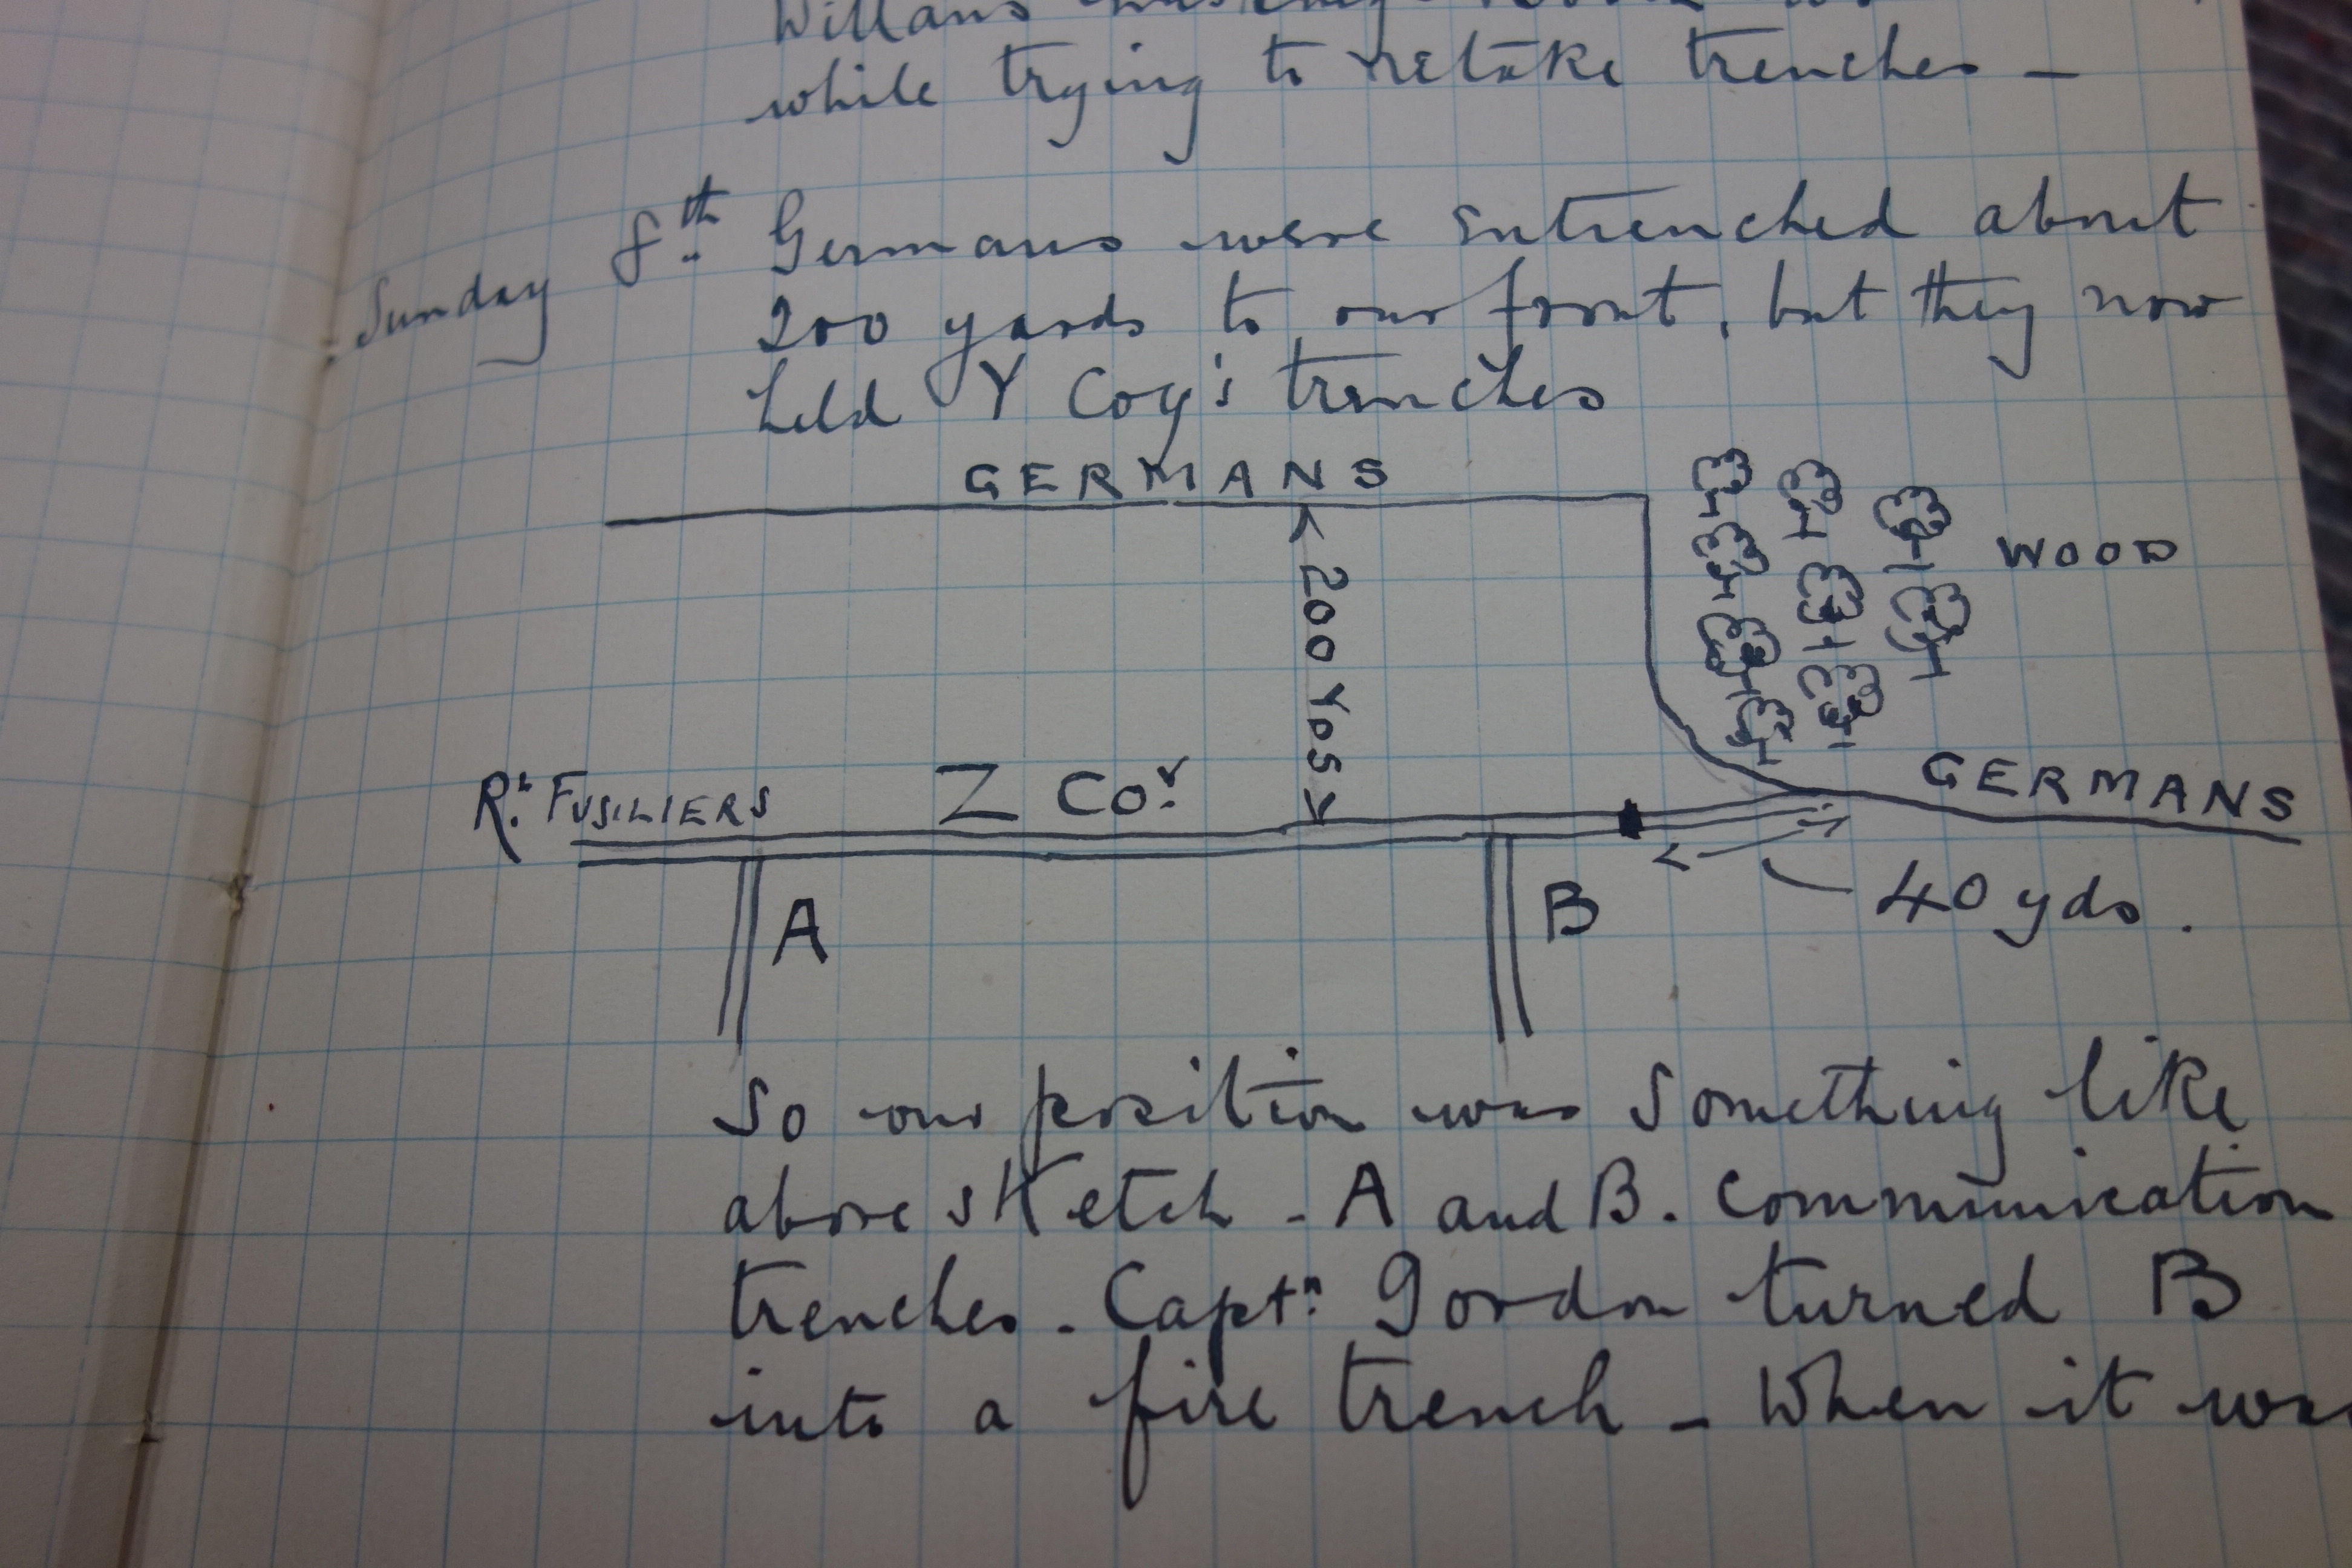 Willans
while trying to retake trenches —
Sunday 8th Germans were entrenched about
200 yards to our front, but they now
held Y Coy's trenches
GERMANS
WOOD
200 YDS
GERMANS
Rl. FUSILIERS Z COY.
40 yds.
A B
So our position was something like
above sketch - A and B. Communication
trenches. Captn. Gordon turned B
into a fire trench — When it was